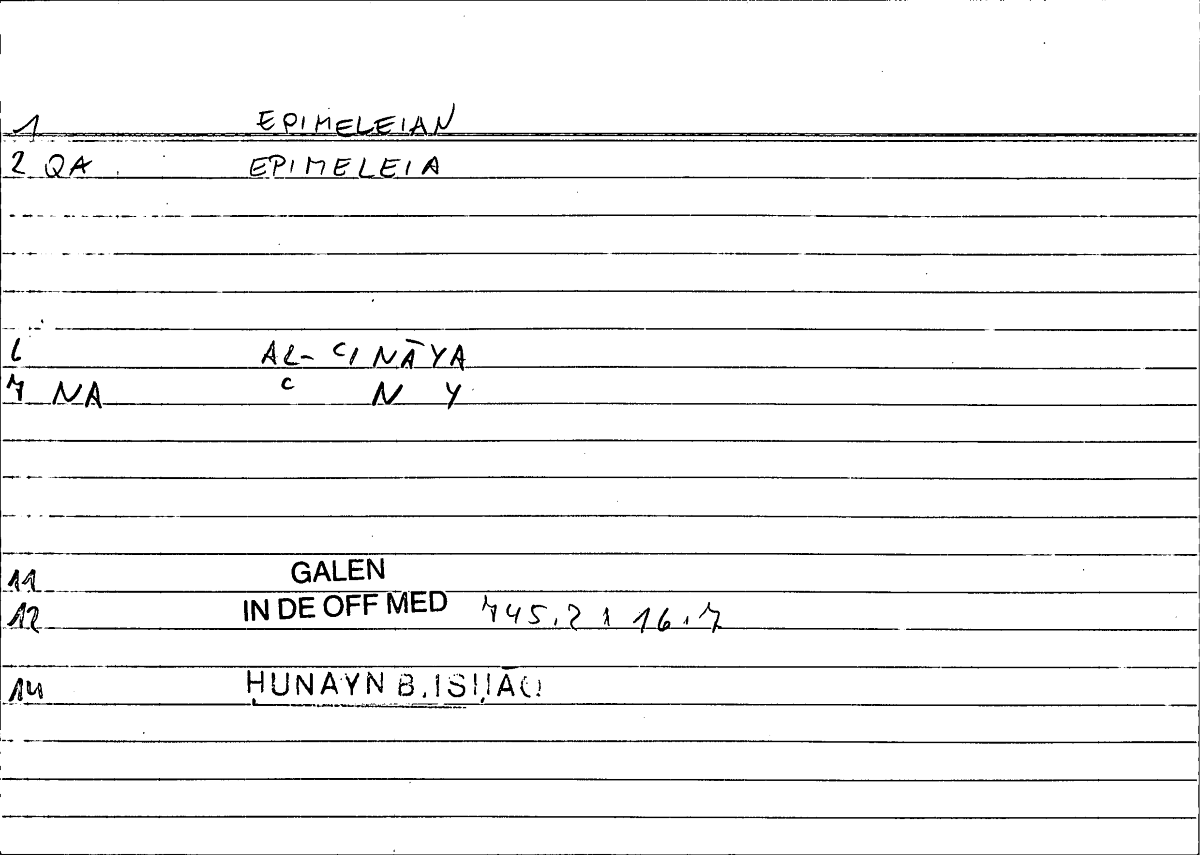 1 EPIMELEIAN
2 QA EPIMELEIA
6 AL-ʿINĀYA
7 NA ʿ N Y
11 GALEN
12 IN DE OFF MED 745.2 ; 16.7
14 ḤUNAYN B.ISḤĀQ